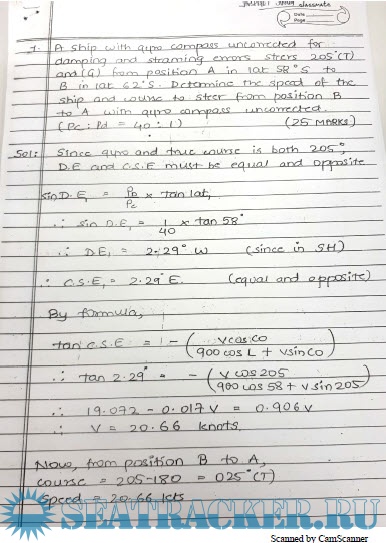 classmate
Date
Page
1. A ship with gyro compass uncorrected for
damping and steaming errors steers 205°(T)
and (G) from position A in lat 58°S to
B in lat 62°S. Determine the speed of the
ship and course to steer from position B
to A with gyro compass uncorrected.
(Pc : Pd = 40 : 1) (25 MARKS)
Sol: Since gyro and true course is both 205°,
D.E and C.S.E must be equal and opposite
sin D.E₁ = PD/Pc x tan lat,
∴ sin D.E₁ = 1/40 x tan 58°
∴ D.E₁ = 2.29° W (since in SH)
∴ C.S.E₁ = 2.29° E. (equal and opposite)
By formula,
tan C.S.E = - (V cos Co / 900 cos L + V sin Co)
∴ tan 2.29° = - (V cos 205 / 900 cos 58 + V sin 205)
∴ 19.072 - 0.017 V = 0.906 V
∴ V = 20.66 knots.
Now, from position B to A,
course = 205-180 = 025° (T)
Speed = 20.66 kts
SEATRACKER.RU
Scanned by CamScanner